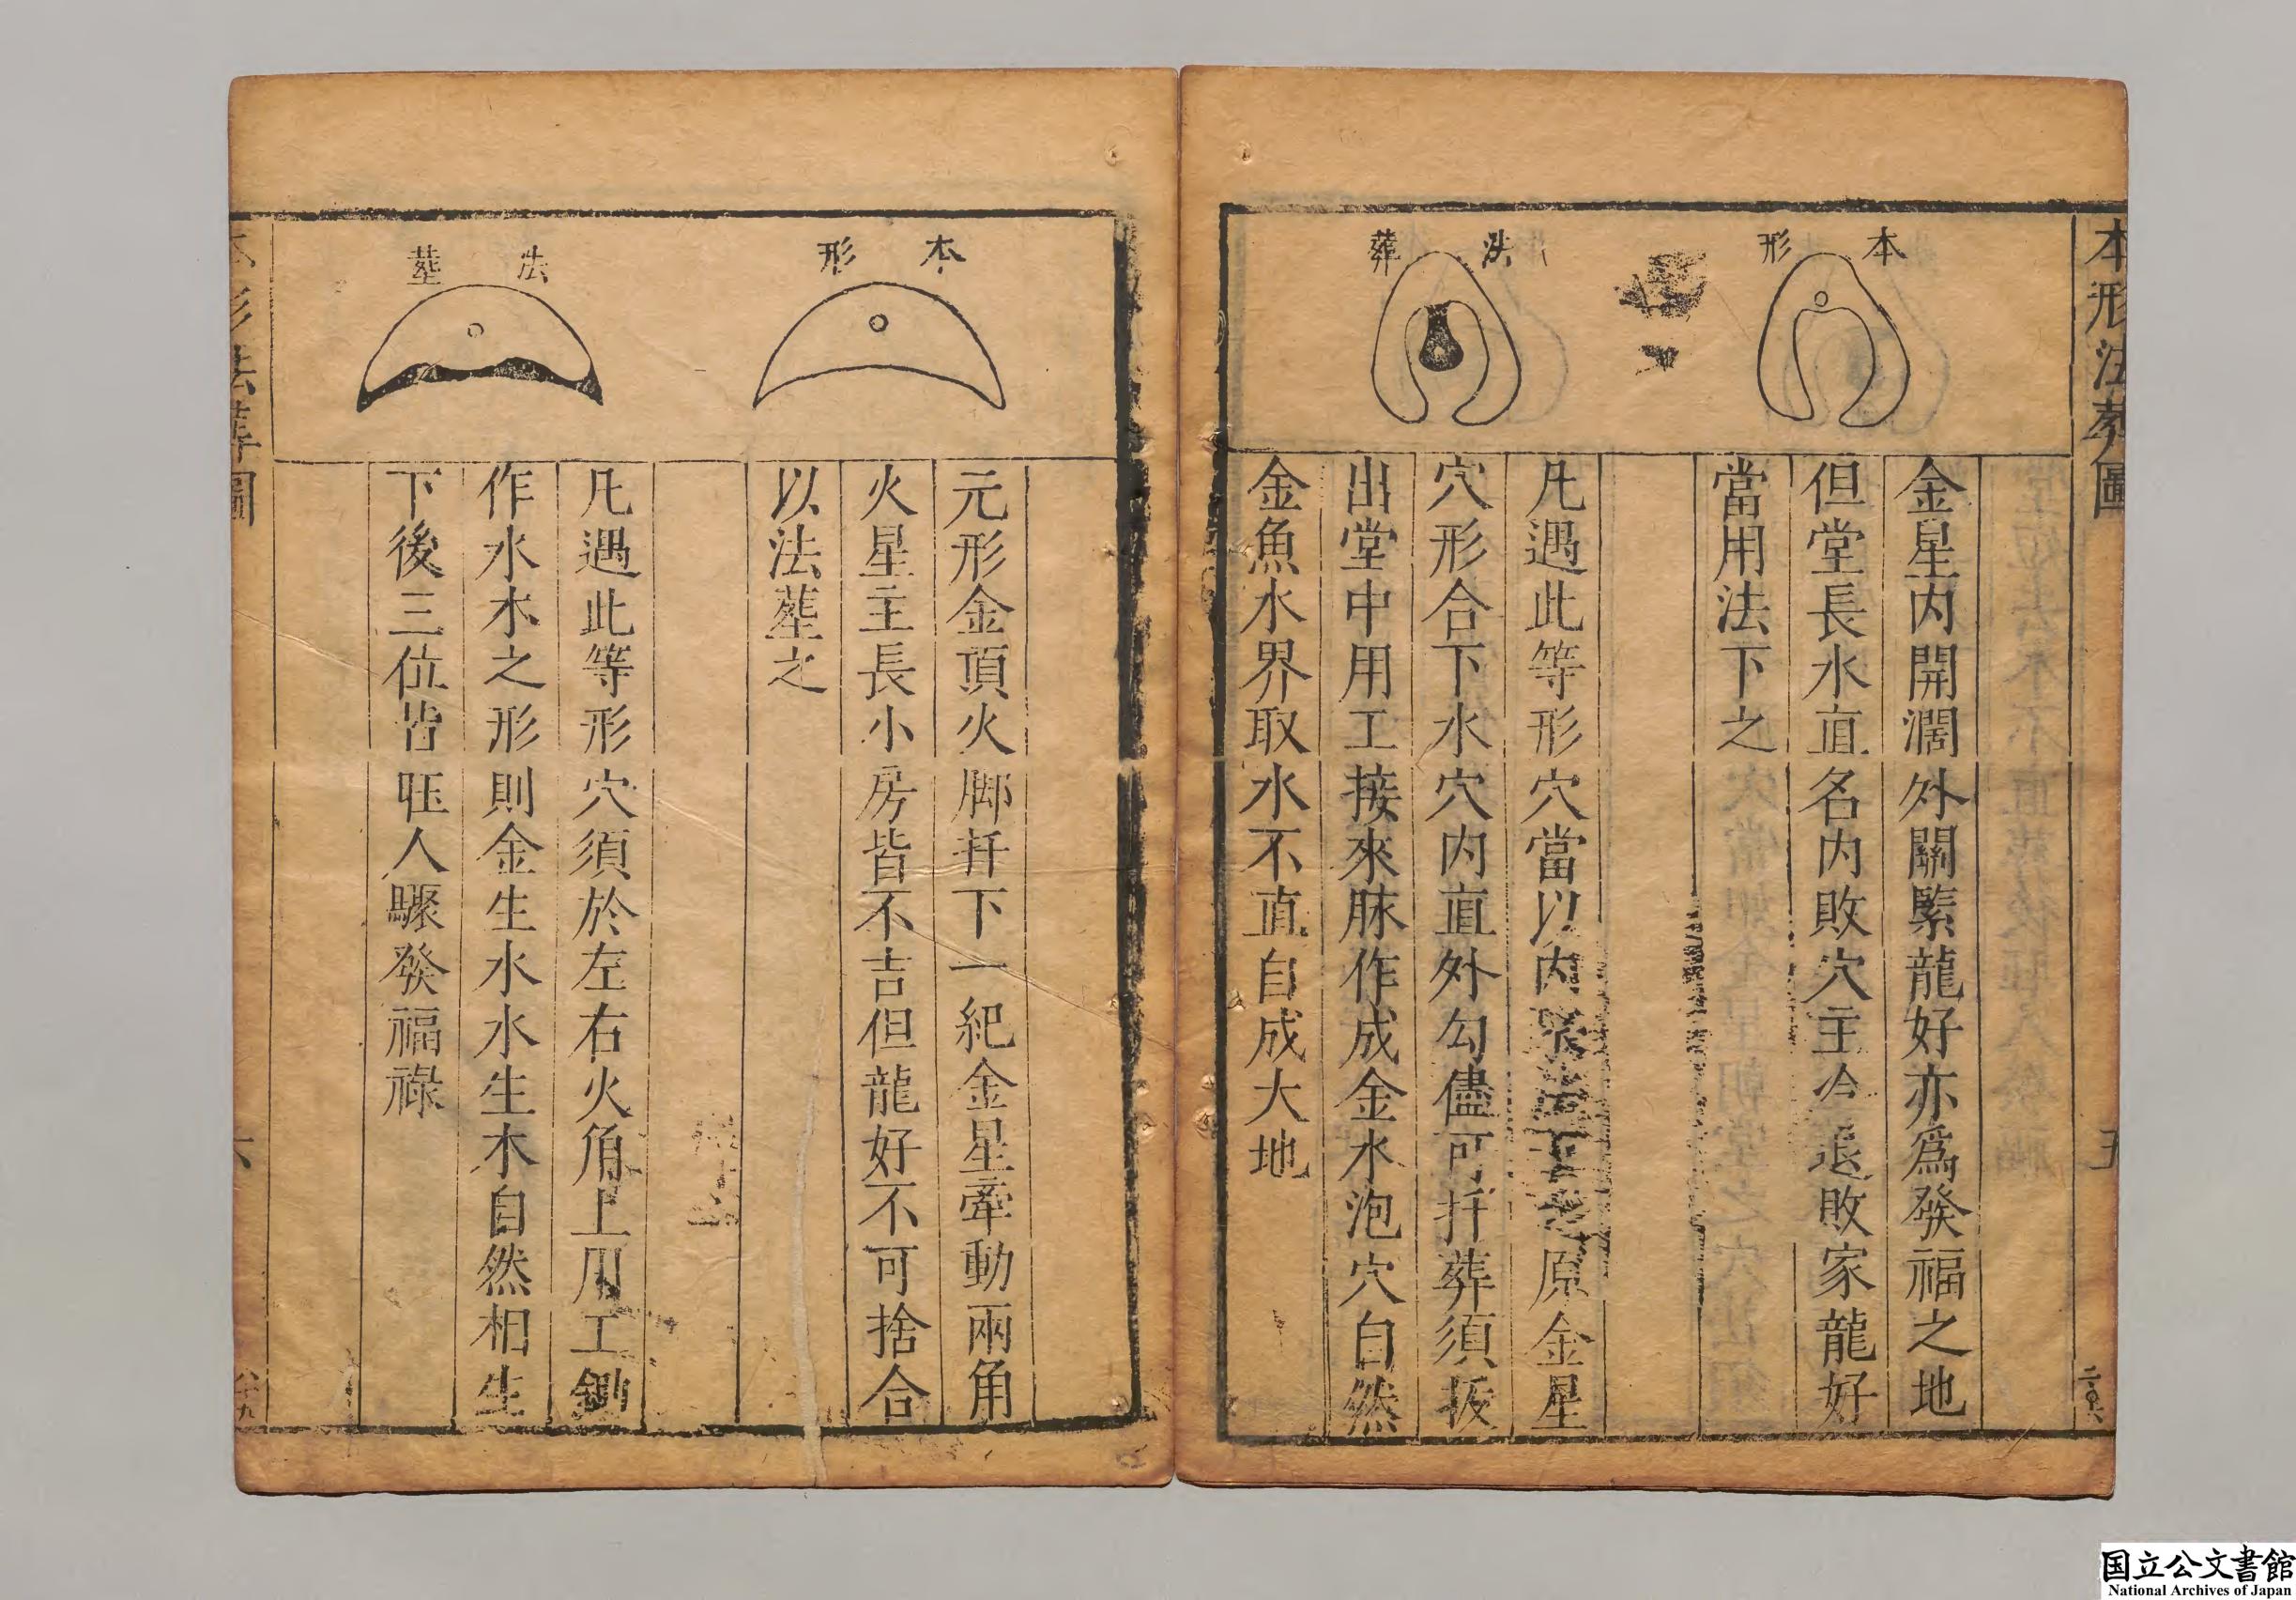 本形法葬圖
五
本形
法葬
金星内開濶外關緊龍好亦爲發福之地
但堂長水直名内敗穴主冷退敗家龍好
當用法下之
凡遇此等形穴當以内 原金星
穴形合下水穴内直外勾儘可扦葬須扳
出堂中用工接來脉作成金水泡穴自然
金魚水界取水不直自成大地
本形
法塟
元形金頂火脚扦下一紀金星牽動兩角
火星主長小房皆不吉但龍好不可捨合
以法塟之
凡遇此等形穴須於左右火角上用工鋤
作水木之形則金生水水生木自然相生
下後三位皆旺人驟發福祿
本形法葬圖
六
国立公文書館
National Archives of Japan